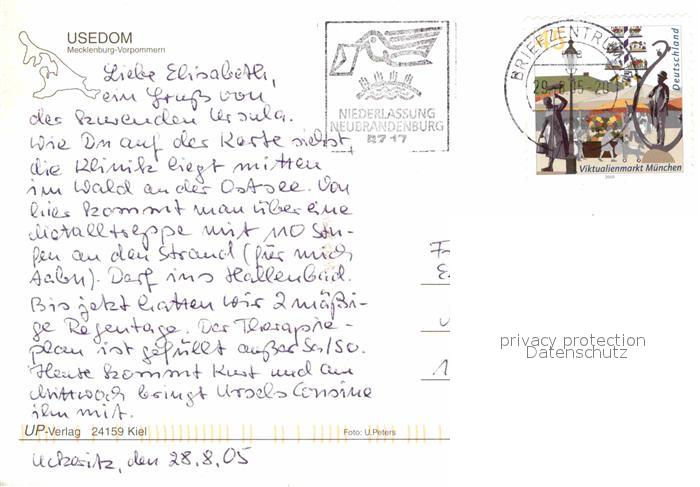 USEDOM
Mecklenburg-Vorpommern
Liebe Elisabeth,
ein Gruß von
der kurenden Ursula.
Wie Du auf der Karte siehst,
die Klinik liegt mitten
im Wald an der Ostsee. Von
hier kommt man über eine
Metalltreppe mit 110 Stu-
fen an den Strand (für mich
). Darf ins Hallenbad.
Bis jetzt hatten wir 2 mäßi-
ge Regentage. Der Therapie-
plan ist gefüllt außer Sa/So.
Heute kommt Kurt und am
Mittwoch bringt Ursels Cousine
ihn mit.
UP-Verlag 24159 Kiel
Foto: U.Peters
Uckeritz, den 28.8.05
NIEDERLASSUNG
NEUBRANDENBURG
BZ 17
BRIEFZENTRUM
29.8.05-20
Deutschland
Viktualienmarkt München
2003
privacy protection
Datenschutz